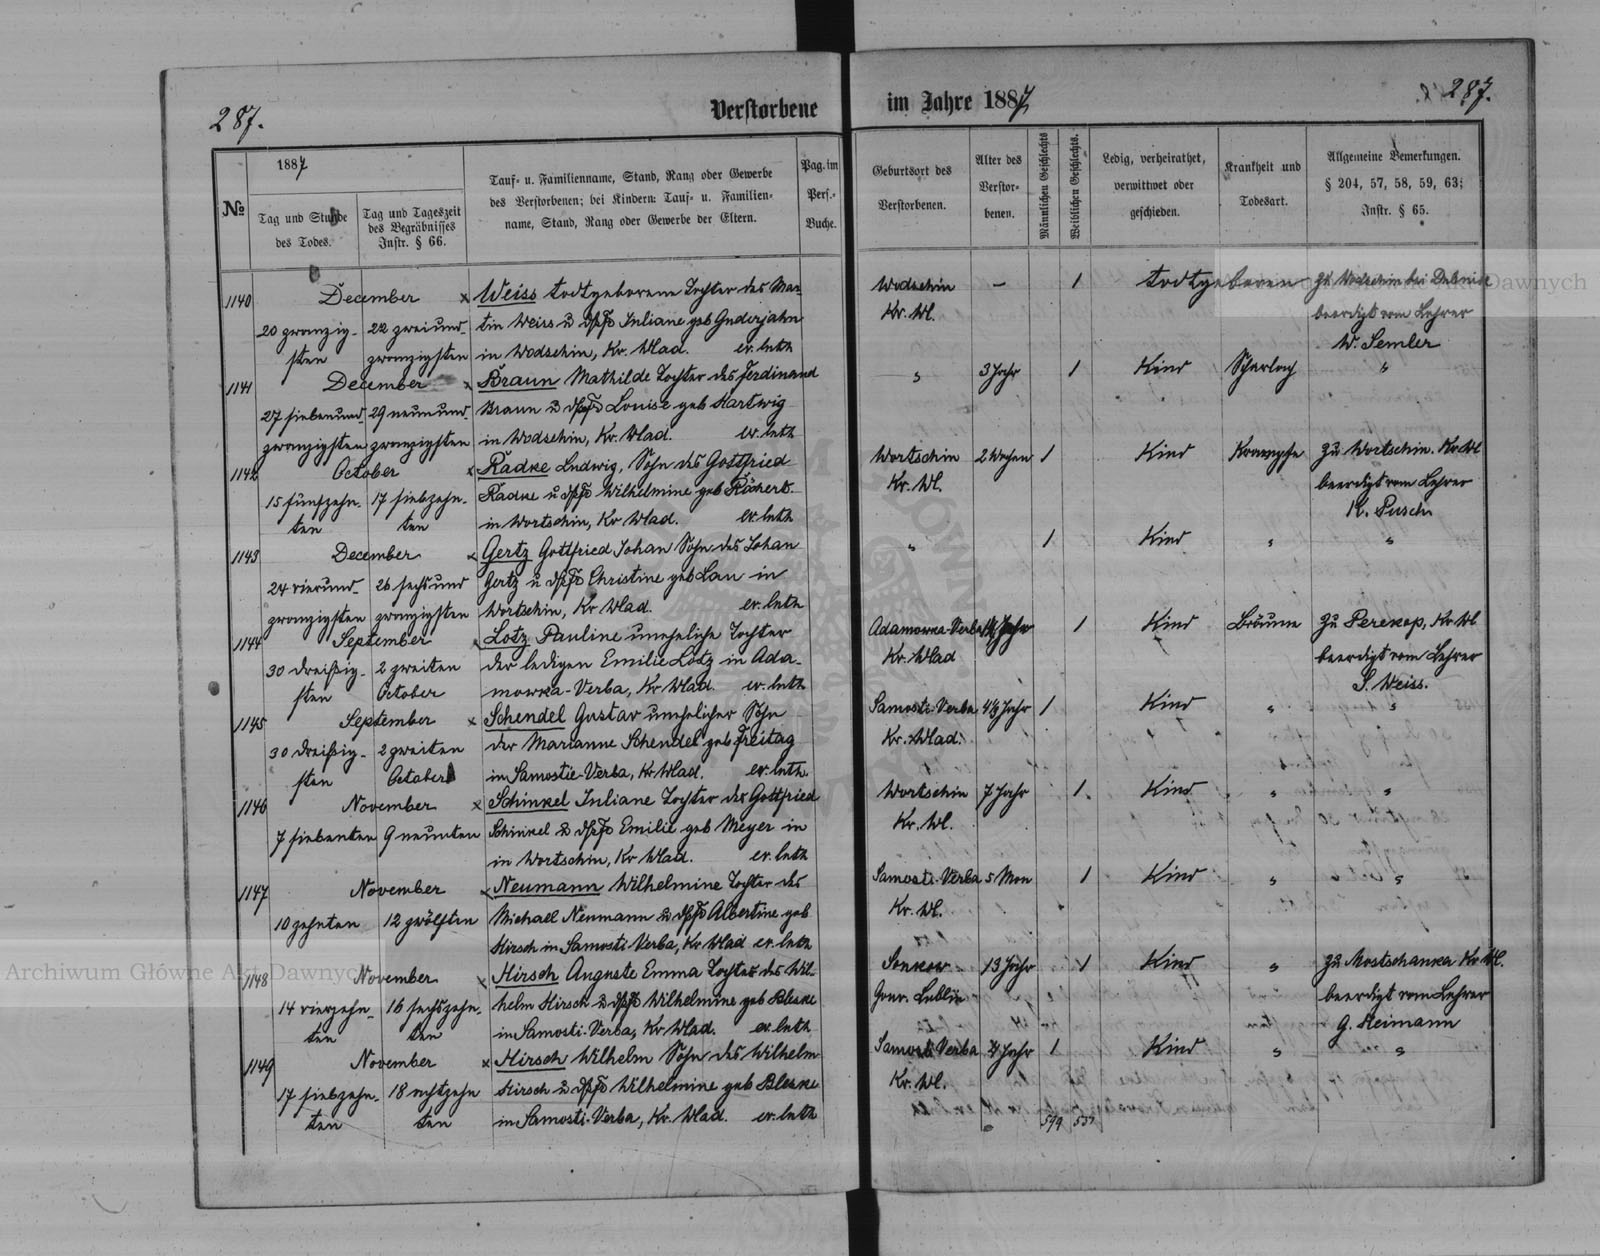 287.
Verstorbene
im Jahre 1887
287.
№
1887
Tag und Stunde
des Todes.
Tag und Tageszeit
des Begräbnisses
Instr. § 66.
Tauf- u. Familienname, Stand, Rang oder Gewerbe
des Verstorbenen; bei Kindern: Tauf- u. Familien-
name, Stand, Rang oder Gewerbe der Eltern.
Pag. im
Pers.-
Buche.
Geburtsort des
Verstorbenen.
Alter des
Verstor-
benen.
Männlichen Geschlechts
Weiblichen Geschlechts.
Ledig, verheirathet,
verwittwet oder
geschieden.
Krankheit und
Todesart.
Allgemeine Bemerkungen.
§ 204, 57, 58, 59, 63;
Instr. § 65.
1140 December × Weiss todtgeborene Tochter des Mar- Wodschin — 1 todtgeboren Zu Wodschin bei
20 zwanzig- 22 zweiund- tin Weiss u Juliane geb Guderjahn Kr. Wl. beerdigt vom Lehrer
sten zwanzigsten in Wodschin, Kr. Wlad. ev. luth W. Semler
1141 December × Braun Mathilde Tochter des Ferdinand " 3 Jahr 1 Kind Scharlach "
27 siebenund- 29 neunund- Braun u Louise geb Hartwig
zwanzigsten zwanzigsten in Wodschin, Kr. Wlad. ev. luth
1142 October × Radke Ludwig, Sohn des Gottfried Wortschin 2 Wochen 1 Kind Krampfe Zu Wortschin. Kr Wl
15 fünfzehn- 17 siebzehn- Radke u Wilhelmine geb Kr. Wl. beerdigt vom Lehrer
ten ten in Wortschin, Kr Wlad. ev. luth K. Pusch
1143 December × Gertz Gottfried Johan Sohn des Johan " 1 Kind " "
24 vierund- 26 sechsund Gertz u Christine geb Lau in
zwanzigsten zwanzigsten Wortschin, Kr Wlad. ev. luth
1144 September × Lotz Pauline uneheliche Tochter Adamowka-Verba Jahr 1 Kind Bräune Zu Perekop, Kr Wl
30 dreißig- 2 zweiten der ledigen Emilie Lotz in Ada- Kr. Wlad beerdigt vom Lehrer
sten October mowka-Verba, Kr Wlad. ev. luth S. Weiss.
1145 September × Schendel Gustav unehelicher Sohn Samosti-Verba 4½ Jahr 1 Kind " "
30 dreißig- 2 zweiten der Marianne Schendel geb Freitag Kr. Wlad.
sten October in Samostie-Verba, Kr Wlad. ev. luth.
1146 November × Schinkel Juliane Tochter des Gottfried Wortschin 7 Jahr 1. Kind " "
7 siebenten 9 neunten Schinkel u Emilie geb Meyer in Kr. Wl.
in Wortschin, Kr Wlad. ev. luth
1147 November × Neumann Wilhelmine Tochter des Samosti-Verba 5 Mon 1 Kind " "
10 zehnten 12 zwölften Michael Neumann u Albertine geb Kr. Wl.
Hirsch in Samosti-Verba, Kr Wlad ev. luth
1148 November × Hirsch Auguste Emma Tochter des Wil- 13 Jahr 1 Kind " Zu Mostschanka Kr Wl.
14 vierzehn- 16 sechszehn- helm Hirsch u Wilhelmine geb Bleske Gouv. Lublin beerdigt vom Lehrer
ten ten in Samosti-Verba, Kr Wlad. ev. luth G. Heimann
1149 November × Hirsch Wilhelm Sohn des Wilhelm Samosti-Verba 4 Jahr 1 Kind " "
17 siebzehn- 18 achtzehn Hirsch u Wilhelmine geb Bleske Kr. Wl.
ten ten in Samosti-Verba, Kr. Wlad. ev. luth
Archiwum Główne Akt Dawnych